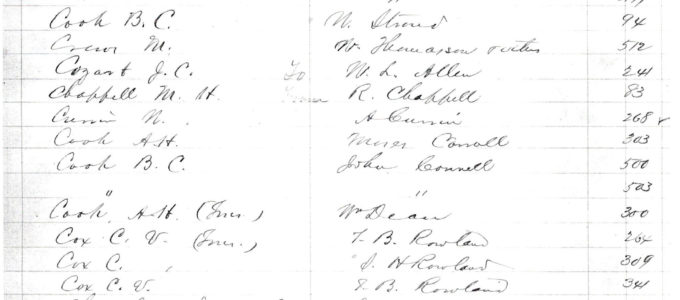 Cook B. C. N. Stroud 94
Crews M. W. Thomasson 512
Cozart J. C. To W. L. Allen 241
Chappell M. H. From R. Chappell 83
Currin N. A Currin 268
Cook A.H. Moses 303
Cook B. C. John Connell 500
" " 503
Cook, A.H. (Trus.) Wm Dean 300
Cox C. V. (Trus.) T. B. Rowland 264
Cox C. , J. H Rowland 309
Cox C. V. T. B. Rowland 341